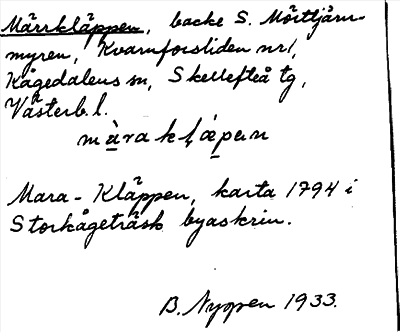 Märrkläppen, backe S. Mörttjärn-
myren, Kvarnforsliden nr 1,
Kågedalens sn, Skellefteå tg,
Västerb. l.
màrakḷæpen
Mara-Kläppen, karta 1794 i
Storkågeträsk byaskrin.
B. Nyopen 1933.